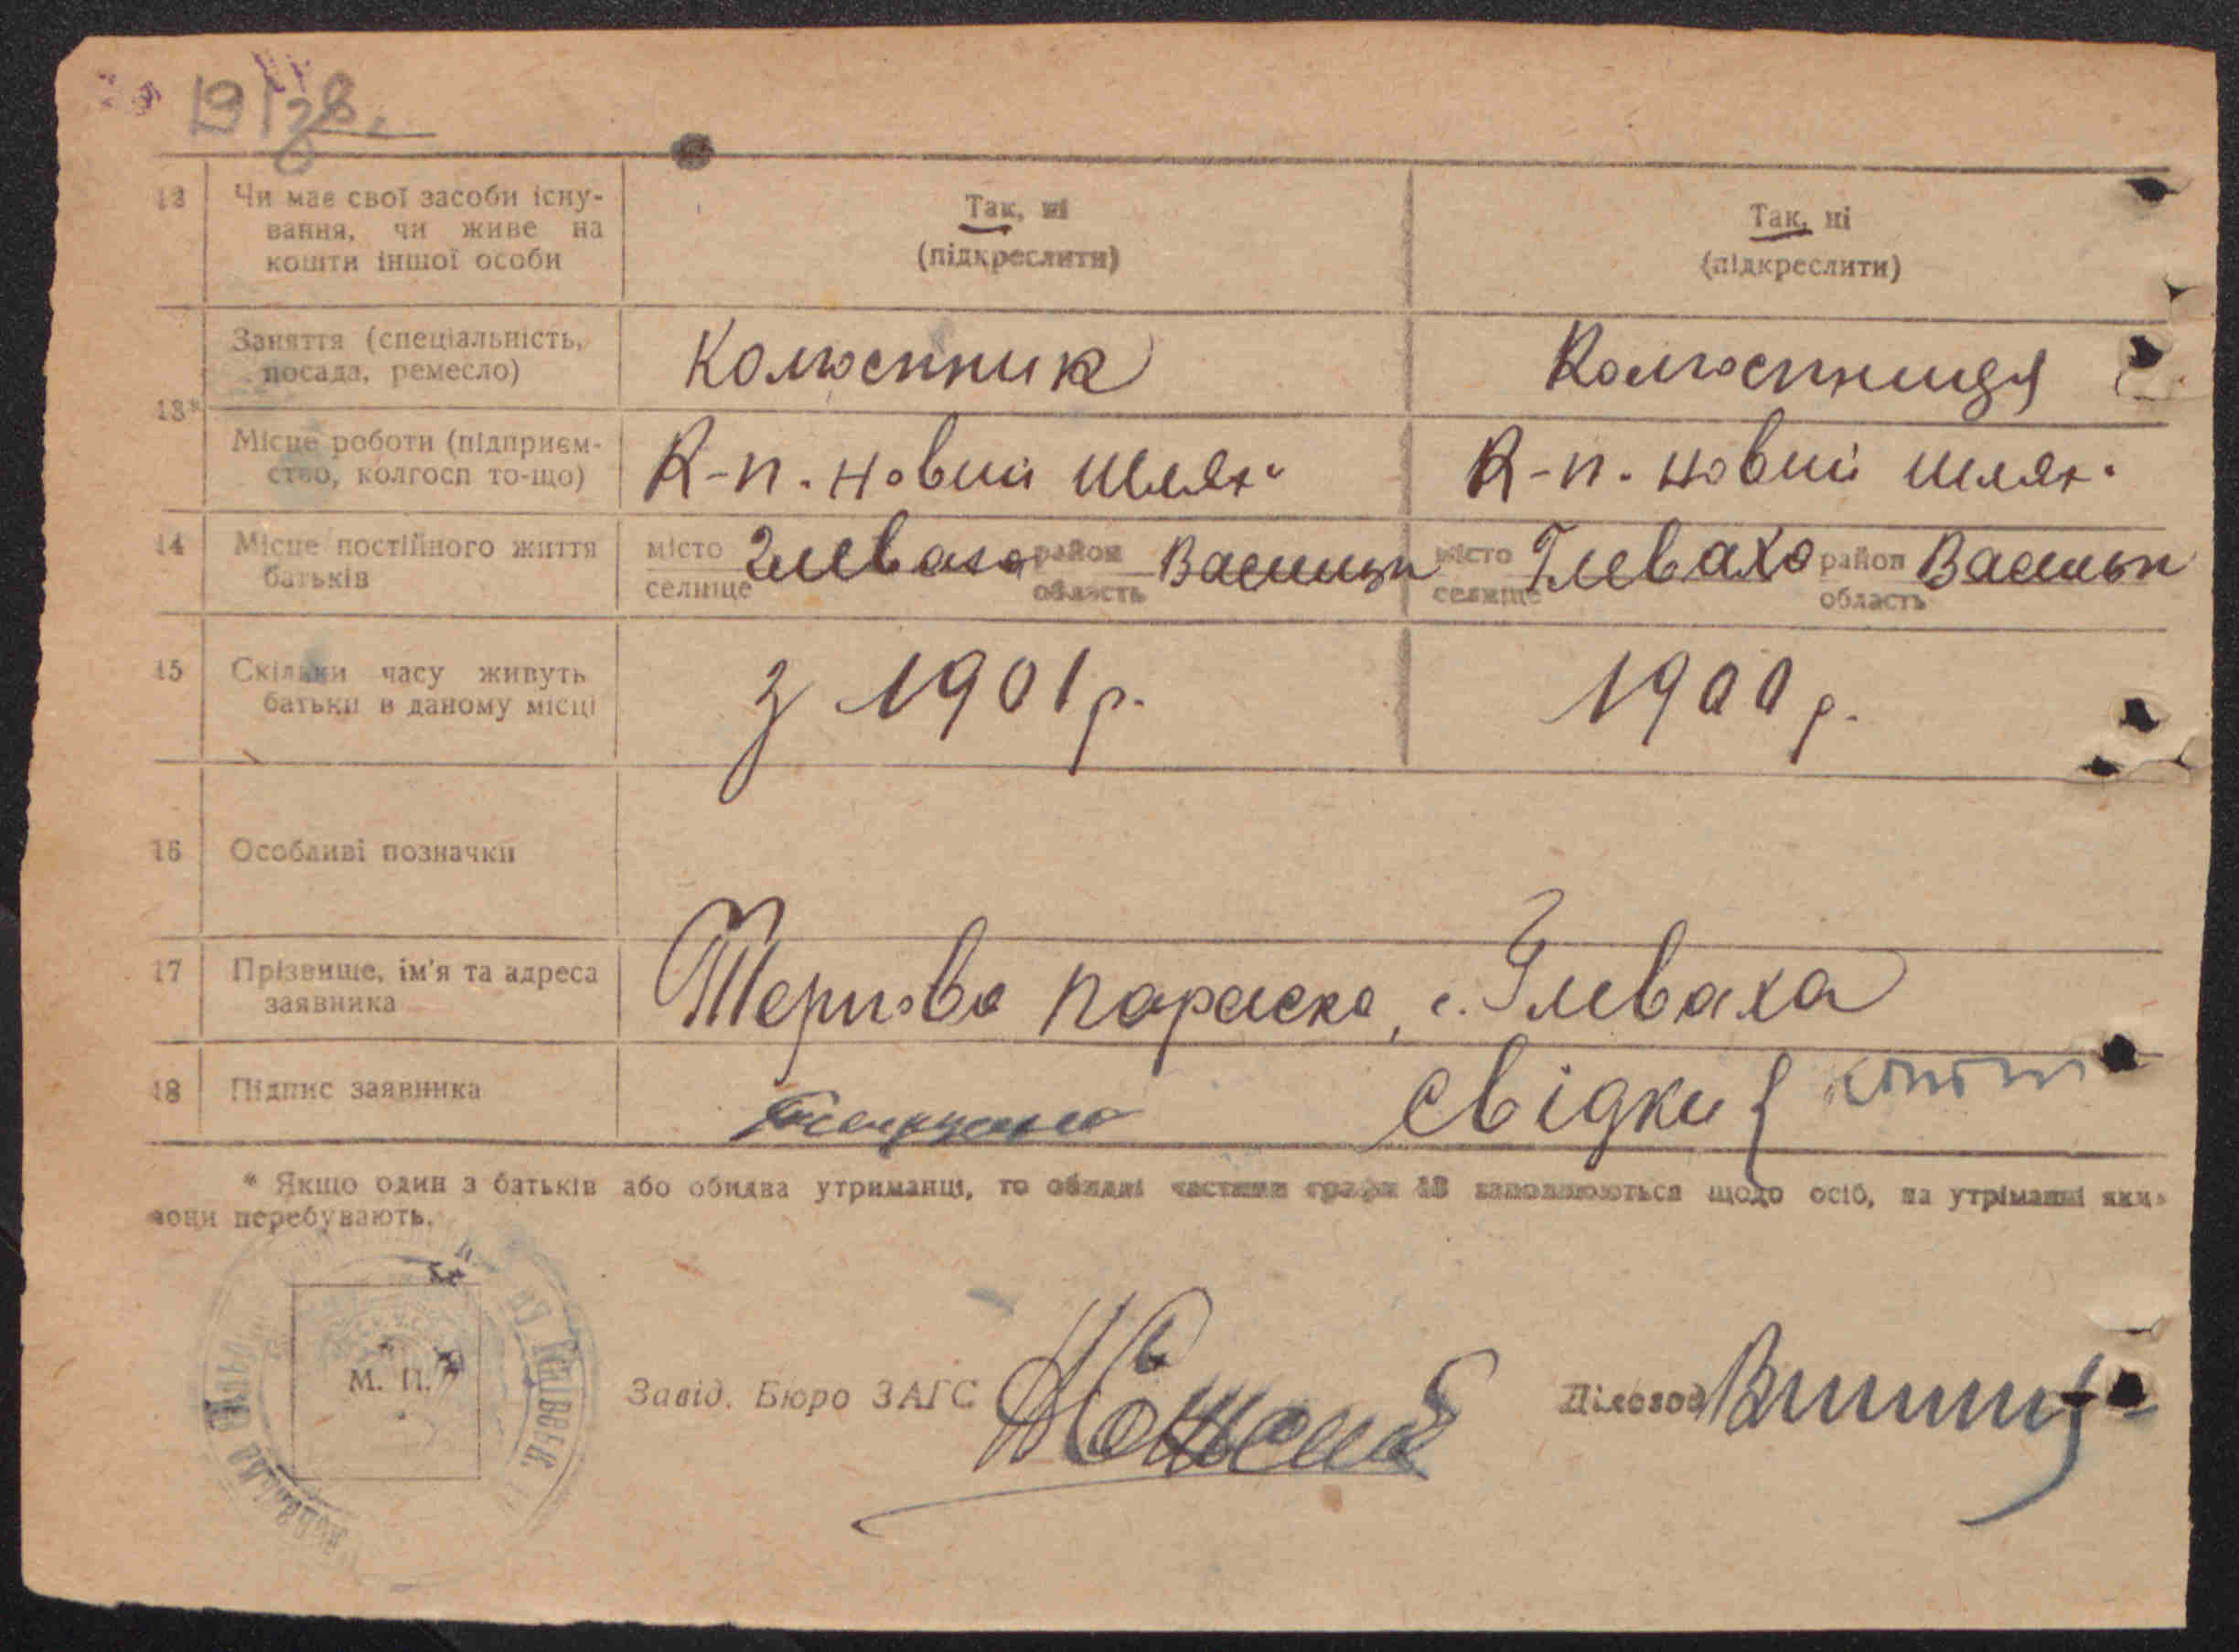 12 Чи має свої засоби існу-
вання, чи живе на
кошти іншої особи
Так, ні
(підкреслити)
Так, ні
(підкреслити)
13*
Заняття (спеціальність,
посада, ремесло)
Колгоспник
Колгоспниця
Місце роботи (підприєм-
ство, колгосп то-що)
К-п. Новий шлях
К-п. Новий шлях
14 Місце постійного життя
батьків
місто
селище
Глеваха
район
область
Васильк
місто
селище
Глеваха
район
область
Васильк
15 Скільки часу живуть
батьки в даному місці
з 1901 р.
1900 р.
16 Особливі позначки
17 Прізвище, ім'я та адреса
заявника
Тернова Параска, с. Глеваха
18 Підпис заявника
Свідки {
* Якщо один з батьків або обидва утриманці, то обидві частини графи 13 заповнюються щодо осіб, на утріманні яких
вони перебувають.
М. П.
Завід. Бюро ЗАГС
Діловод